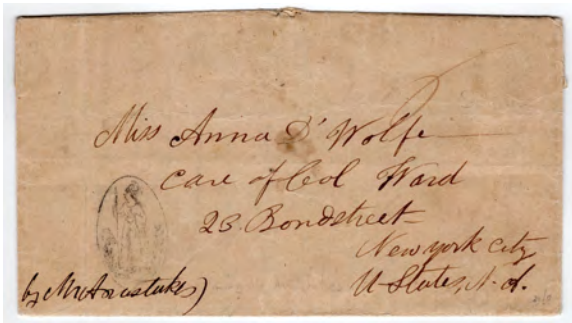 Miss Anna D'Wolfe
care of Col Ward
23. Bondstreet
New york City
U States, N. A.
by Mr